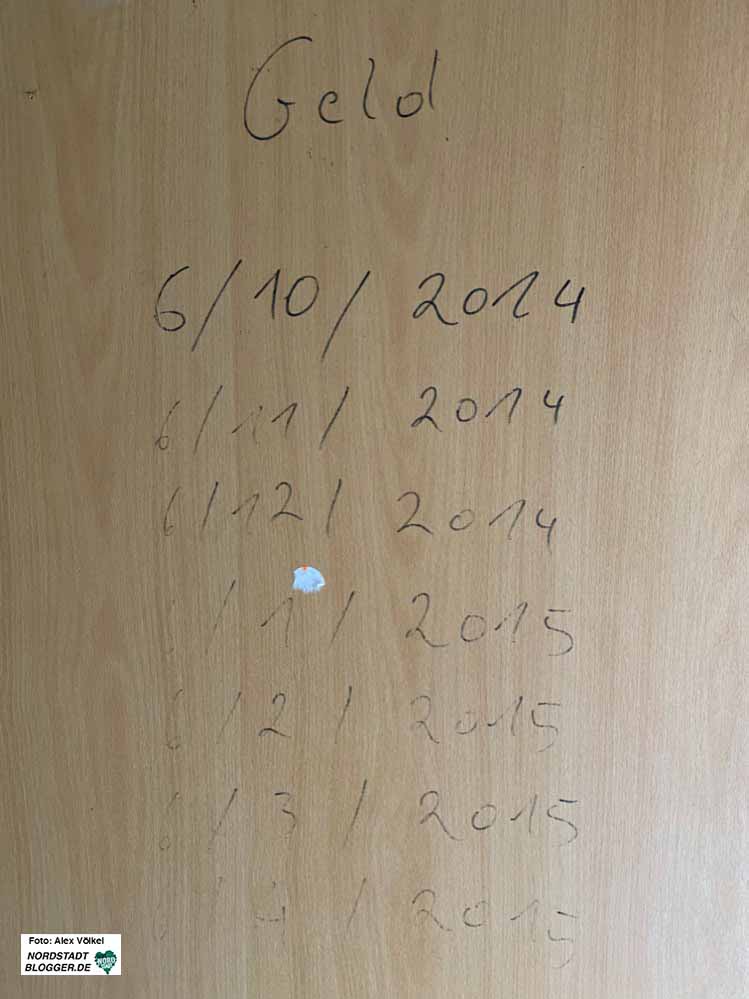 Geld
6/10/2014
6/11/2014
6/12/2014
6/1/2015
6/2/2015
6/3/2015
6/4/2015
Foto: Alex Völkel
NORDSTADT
BLOGGER.DE